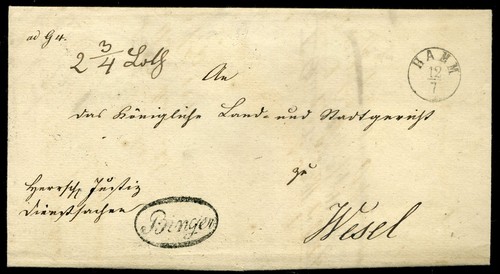 ad G 4.
2 3/4 Loth
HAMM
12
7
An
das Königliche Land- und Stadtgericht
zu
Wesel
Herrsch Justiz
Dienstsachen